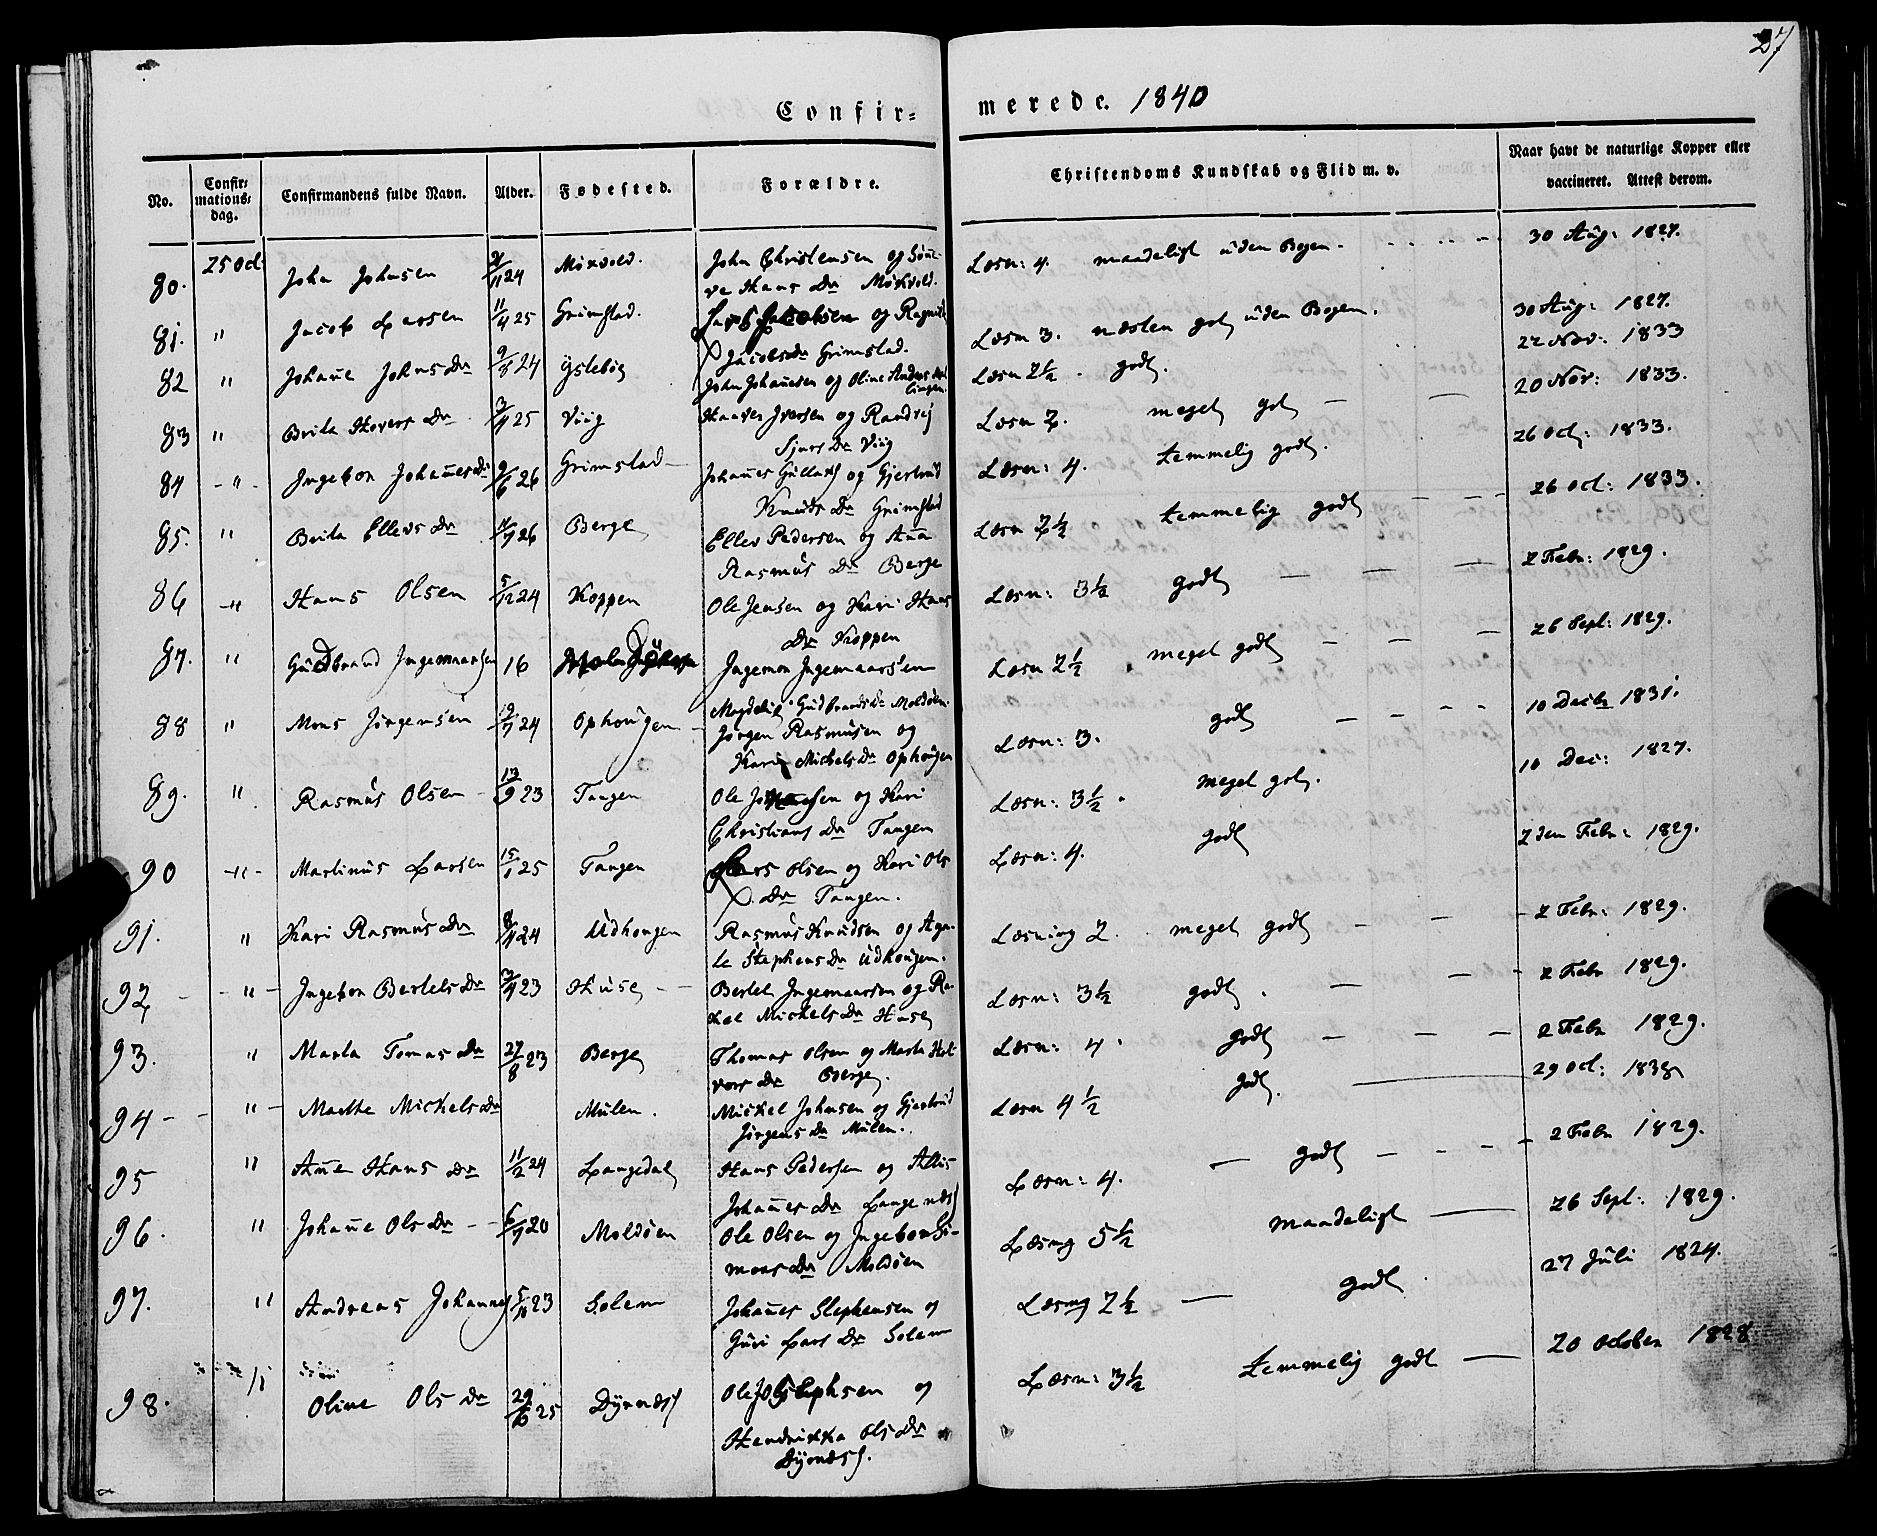 27
Confir=merede. 1840
No. | Confir=mations=dag. | Confirmandens fulde Navn. | Alder. | Fødested. | Forældre. | Christendoms Kundskab og Flid m. v. | Naar havt de naturlige Kopper eller vaccineret. Attest derom.
80. 25 Oct John Johnsen /11 24 Mørvold. John Christensen og Sønneve Hans Dr Mørkvold. Læsn: 4. maadeligt uden Bogen. 30 Aug: 1827.
81. " Jacob Larsen 11/4 25 Grimstad. Lars Jacobsen og Ragnild Jacobs Dr Grimstad. Læsn 3. næsten got uden Bogen. 30 Aug: 1827.
82 " Johanne Johns Dr 9/8 24 Ystebøe John Johannesen og Oline Anders Læsn 2½. godt. 22 Nov: 1833
83 " Brita Hovers Dr 3/4 25 Viig Haaver Iversen og Randvei Sjurs Dr Viig Læsn 2. meget got 20 Nov: 1833.
84 -"- Ingebor Johannes Dr 9/6 26 Grimstad Johannes Gullaks og Gjertrud Knuds Dr Grimstad Læsn: 4. temmelig godt. 26 Oct: 1833.
85. " Brita Ellevs Dr 26 Berge Ellev Pedersen og Anna Rasmus Dr Berge Læsn 2½ temmelig godt 26 Oct: 1833.
86 -" Hans Olsen 5/12 24 Koppen Ole Jensen og Kari Hans Dr Koppen Læsn: 3½ godt 2 Febr: 1829.
87. " Gudbrand Ingemaarsen 16 Ingemor Ingemaarsen Magdeli Gudbrands Dr Moldøen Læsn 2½ meget godt 26 Sept: 1829.
88 " Mons Jørgensen 24 Ophougen Jørgen Rasmusen og Kari Michels Dr Ophougen Læsn: 3. godt 10 Decbr 1831.
89. " Rasmus Olsen 13/9 23 Tangen Ole og Kari Christians Dr Tangen Læsn: 3½. meget got. 10 Dec: 1827.
90 -"- Martinus Larsen 15/1 25 Tangen Lars Olsen og Kari Ols Dr Tangen. Læsn: 4. godt 2den Febr: 1829.
91. " Kari Rasmus Dr 24 Udhougen Rasmus Knudsen og Agate Stephens Dr Udhougen. Læsning 2. meget godt 2 Febr: 1829.
92 -"- Ingebor Bertels Dr 23 Huse Bertel Ingemaarsen og Rakel Michels Dr Huse Læsn: 3½ godt. 2 Febr 1829.
93. " Marta Tomas Dr 27/8 23 Berge Thomas Olsen og Marta Halvors Dr Berge. Læsn: 4. godt 2 Febr 1829.
94 -"- Marthe Michels Dr Mulen. Mickel Johnsen og Gjertrud Jørgens Dr Mulen. Læsn 4½ godt. 29 Oct: 1838
95 " Anne Hans Dr 11/2 24 Langedal Hans Pedersen og Allis Johannes Dr Læsn: 4. godt 2 Febr 1829.
96. " Johanne Ols Dr 20 Moldøen Ole Olsen og Ingebor Simons Dr Moldøen Læsng 5½ maadeligt 26 Sept: 1829.
97. " Andreas Johannes 23 Solem Johannes Stephensen og Guri Lars Dr Solem Læsng 2½ godt 27 Juli 1824.
98. Oline Ols Dr 25 Dyrnæs Ole og Hendrikka Ols Dr Dyrnæs. Læsn: 3½ temmelig godt 20 October 1828